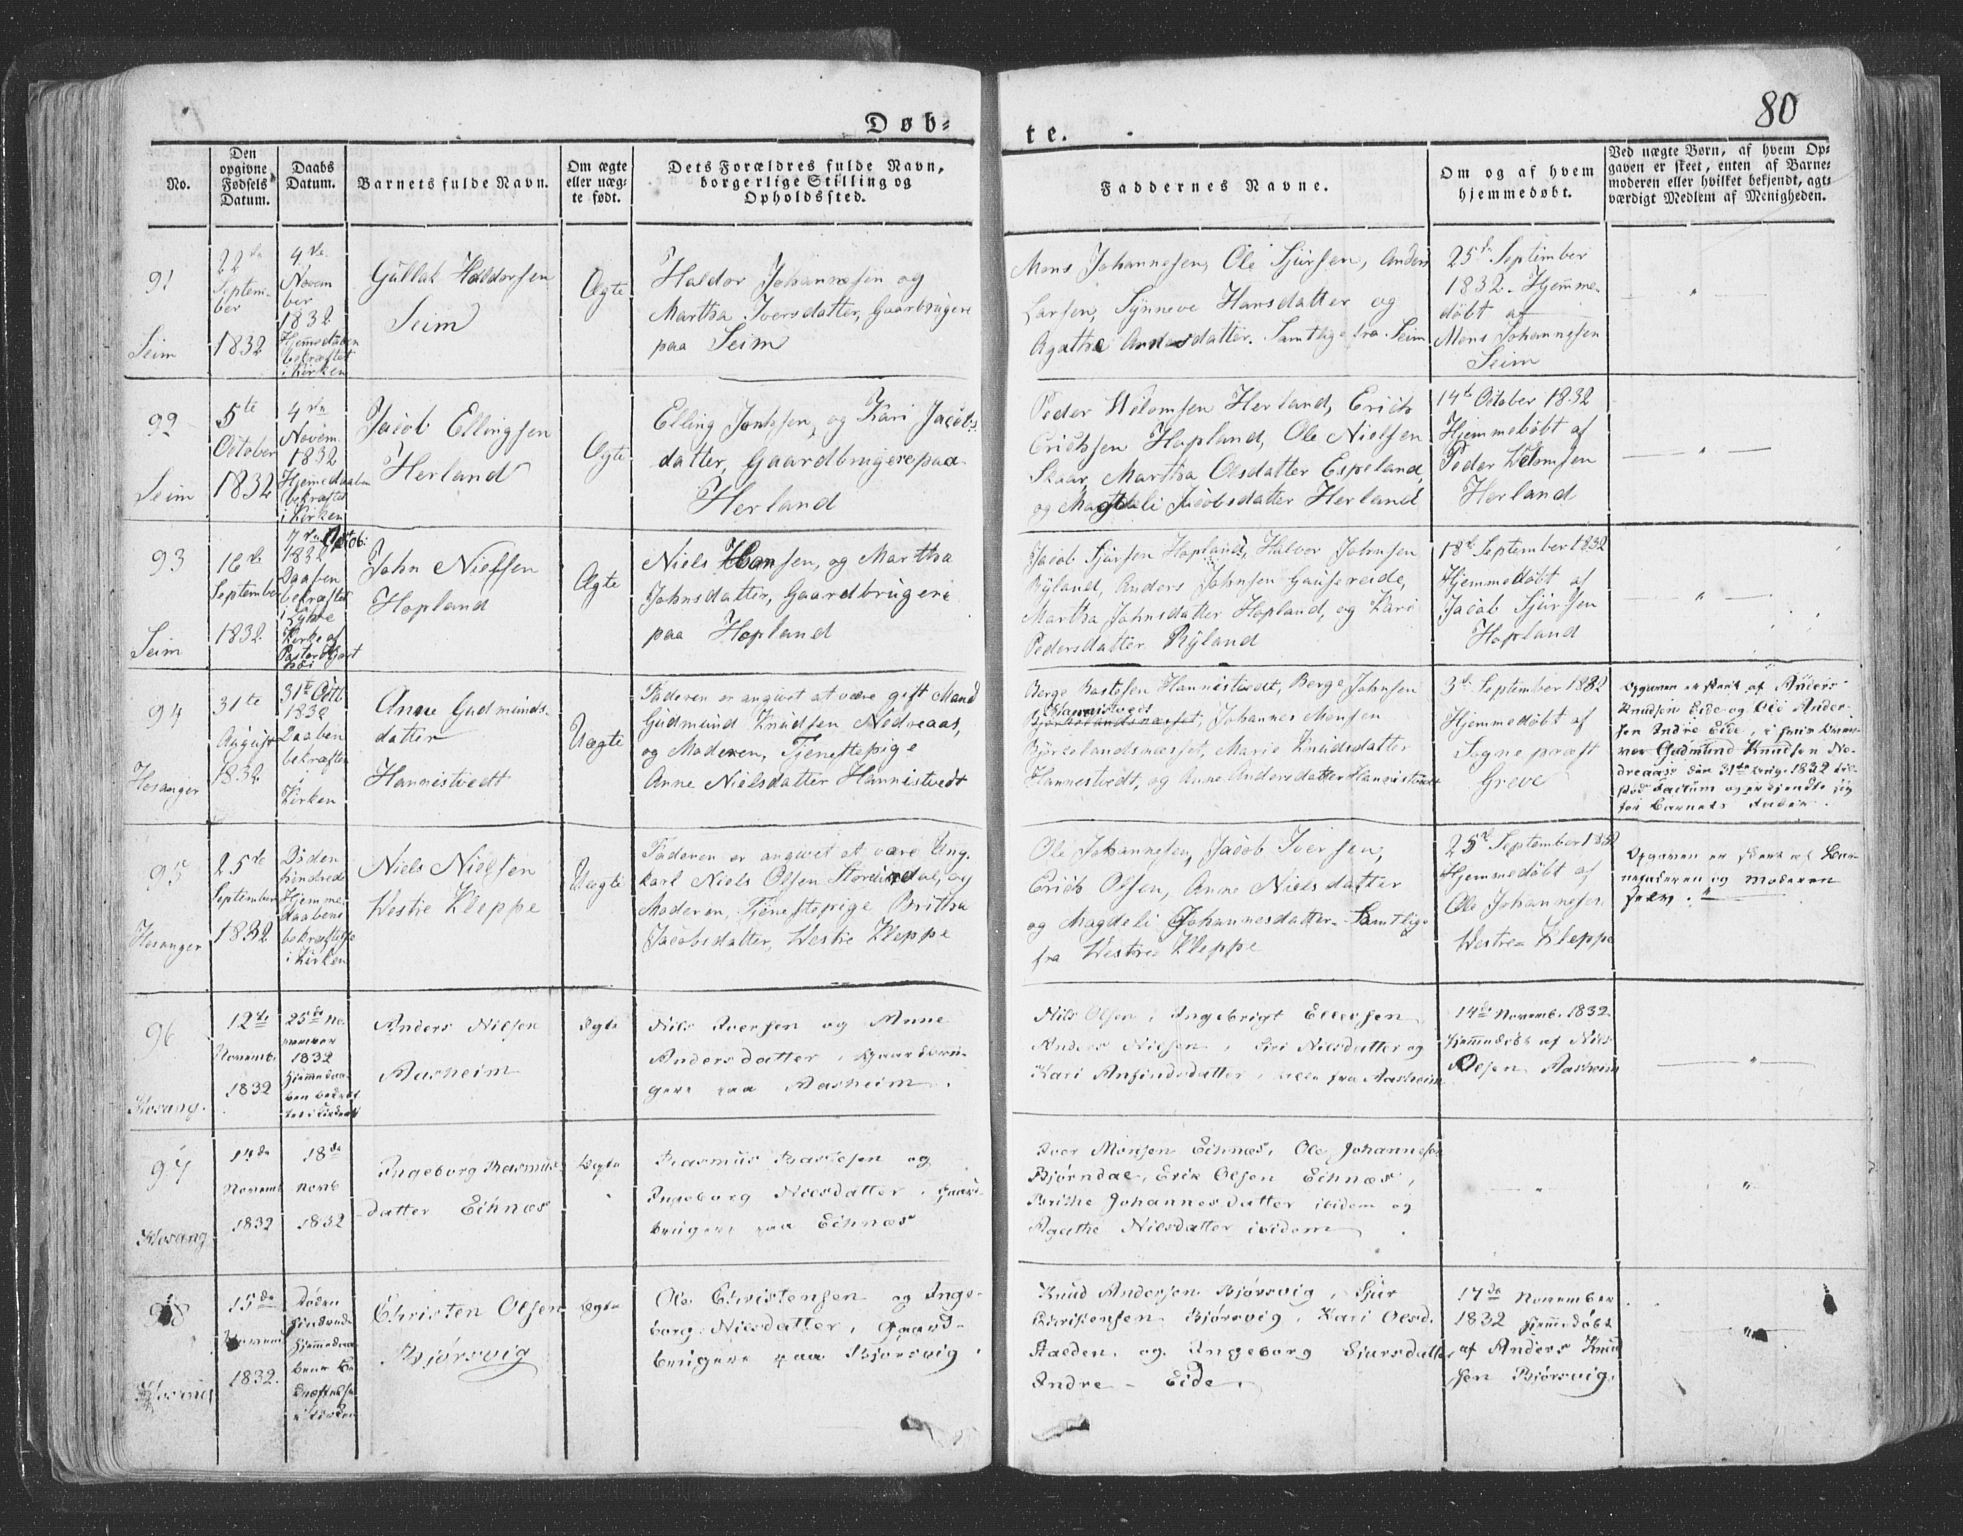 80
Døb-
te.
No.
Den
opgivne
Fødsels
Datum.
Daabs
Datum.
Barnets fulde Navn.
Om ægte
eller næg-
te født.
Dets Forældres fulde Navn,
borgerlige Stilling og
Opholdssted.
Faddernes Navne.
Om og af hvem
hjemmedøbt.
Ved uægte Børn, af hvem Op-
gaven er skeet, enten af Barne-
moderen eller hvilket bekjendt, agt-
værdigt Medlem af Menigheden.
91
Seim
22de
Septem-
ber
1832
4de
Novem
ber
1832
Hjemedaaben
bekræftet
i Kirken
Gullak Haldorsen
Seim
Ægte
Haldor Johannesen og
Martha Iversdatter, Gaarbrugere
paa Seim
Mons Johannesen, Ole Sjursen, Anders
Larsen, Synneve Hansdatter og
Agatha Andersdatter. Samtlige fra Seim
25de September
1832. Hjemme-
døbt af
Mons Johannesen
Seim
92
Seim
5te
October
1832
4de
Novem.
1832
Hjemedaaben
bekræftet
i Kirken
Jacob Ellingsen
Herland
Ægte
Elling Jonssen, og Kari Jacobs
datter, Gaardbrugere paa
Herland
Peder Wilomsen Herland, Erick
Ericksen Hopland, Ole Nielsen
Skaar, Martha Olsdatter Espeland,
og Magdeli Jacobsdatter Herland
14de October 1832
Hjemmedøbt af
Peder Wilomsen
Herland
93
Seim
16de
September
1832
7de Octob:
1832
Daaben
bekræftet
i Lykke
Kirke af
Pastor
John Nielsen
Hopland
Ægte
Niels Hansen, og Martha
Johnsdatter, Gaardbrugere
paa Hopland
Jacob Sjursen Hopland, Halvor Johnsen
Ryland, Anders Johnsen Gausereide,
Martha Johnsdatter Hopland, og Kari
Pedersdatter Ryland
18de September 1832
Hjemmedøbt af
Jacob Sjursen
Hopland
94
Hosanger
31te
August
1832
31te Octb
1832
Daaben
bekræftet
i
Kirken
Anne Gudmunds-
datter
Hannistvedt
Uægte
Faderen er angivet at være gift Mand
Gudmund Knudsen Nedreaas,
og Moderen, Tjenestepige
Anne Nielsdatter Hannistvedt
Berge Bastesen Hannistvedt, Berge Johnsen
Hannistvedt
Bjørkelandsnæsset, Johannes Monsen
Bjørkelandsnæsset, Marie Knudsdatter
Hannestvedt, og Anne Andersdatter Hannistvedt
3de September 1832
Hjemmedøbt af
Sogne præst
Greve
Opgaven er skeet af Anders
Knudsen Eide og Ole Ander-
sen Indre Eide,
Gudmund Knudsen Ne-
dreaas den 31te Aug. 1832 til-
stod Factum og erkjendte sig
for Barnets Fader.
95
Hosanger
25de
September
1832
Døden
hindrede
Hjemme-
daabens
bekræftelse
i Kirken
Niels Nielsen
Westre Kleppe
Uægte
Faderen er angivet at være Ung-
karl Niels Olsen Storindal, og
Moderen, Tjenestepige Britha
Jacobsdatter, Westre Kleppe
Ole Johannesen, Jacob Iversen,
Erick Olsen, Anne Nielsdatter
og Magdeli Johannesdatter. Samtlige
fra Westre Kleppe
25de September 1832
Hjemmedøbt af
Ole Johannesen
Westre Kleppe
Opgaven er skeet af Bar-
nefaderen og Moderen
selv.
96
Hosang.
12te
Novemb.
1832
25de No-
vember
1832
Hjemmedaa-
ben bekræf-
tet i Kirken
Anders Nilsen
Aasheim
Ægte
Nils Iversen og Anne
Andersdatter, Gaardbru-
gere paa Aasheim.
Nils Olsen, Ingebrigt Ellersen
Anders Nilsen, Siri Nilsdatter og
Kari Anfindsdatter, alle fra Aasheim
14de Novemb. 1832.
Hjemmedøbt af Nils
Olsen Aasheim
97
Hosang
14de
Novemb
1832
18de
Novb
1832
Ingeborg Rasmus-
datter Eihnæs
Ægte
Rasmus Bastesen og
Ingeborg Nilsdatter, Gaard-
brugere paa Eihnæs
Iver Monsen Eihnæs, Ole Johannesen
Bjørndal, Erik Olsen Eihnæs,
Brithe Johannesdatter ibidem og
Agathe Nilsdatter ibidem
98
Hosang
15de
Novemb
1832.
Døden
hindrede
Hjemmedaa-
bens be-
kræftelse
i Kirken
Christen Olsen
Bjørsvig
Ægte
Ole Christensen og Inge-
borg Nilsdatter, Gaard-
brugere paa Bjørsvig.
Knud Andersen Bjørsvig, Sjur
Christensen Bjørsvig, Kari Olsd.
Stalden og Ingeborg Sjursdatter
Indre-Eide.
17de November
1832 hjemedøbt
af Anders Knud
sen Bjørsvig.